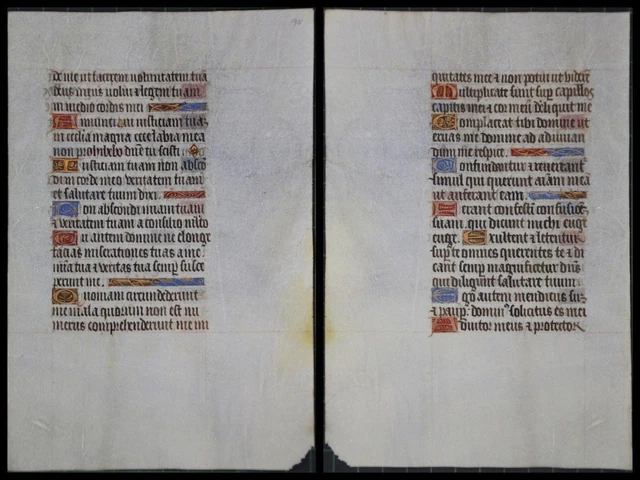 de me ut facerem voluntatem tua
deus meus volui & legem tuam
in medio cordis mei
Annuntiavi iusticiam tuaz
in ecclia magna ecce labia mea
non prohibebo dne tu scisti
Iusticiam tuam non abscon
di in corde meo veritatem tuam
et salutare tuum dixi.
Non abscondi miam tuam
& veritatem tuam a consilio mlto
Tu autem domine ne elonge
facias miserationes tuas a me:
mia tua & veritas tua semp susce
perunt me.
Quoniam circundederunt
me mala quorum non est nu
merus comprehenderunt me ini
quitates mee & non potui ut viderē
Multiplicate sunt sup capillos
capitis mei & cor meū deliquit me
Complaceat tibi domine ut
eruas me domine ad adiuvan
dum me respice.
Confundantur & revereant
simul qui querunt aiam mea
ut auferant eam.
Ferant confestī confusioē
suam. qui dicunt michi euge
euge. Exultent & letentur
sup te omnes querentes te & di
cant semp magnificetur dns
qui diligunt salutare tuum
Ego autem mendicus suz
& paup. dominus solicitus es mei
Adiutor meus & protector